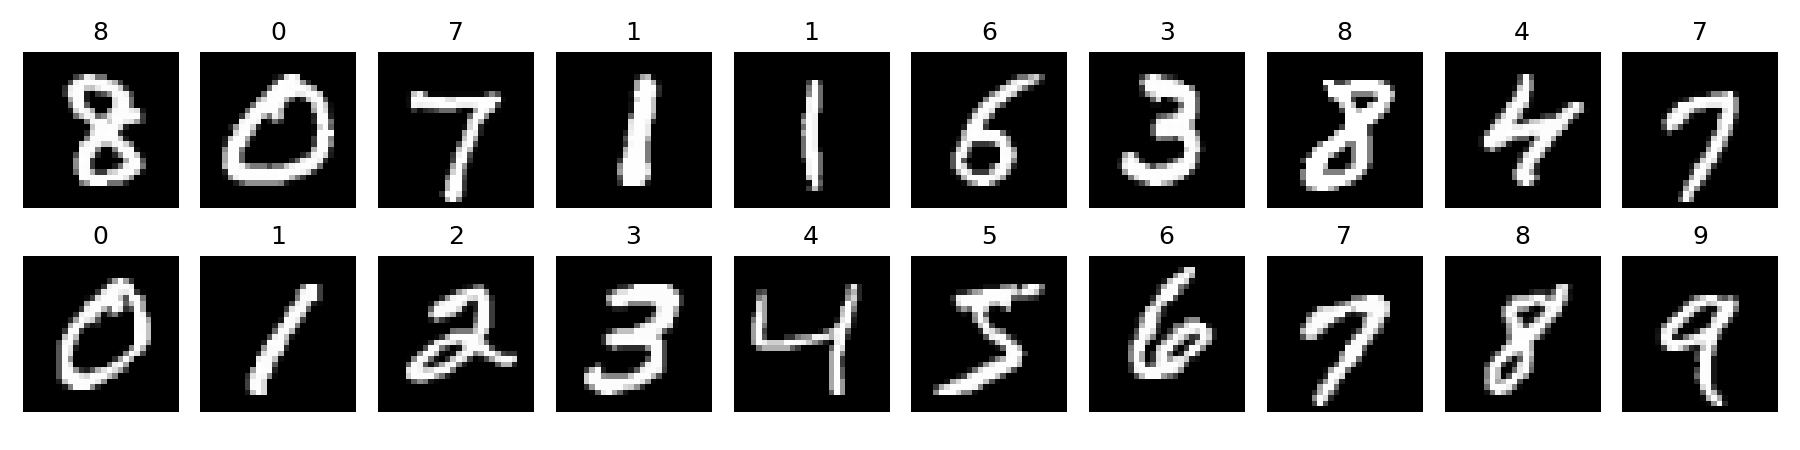 8 0 7 1 1 6 3 8 4 7
8 0 7 1 1 6 3 8 4 7
0 1 2 3 4 5 6 7 8 9
0 1 2 3 4 5 6 7 8 9